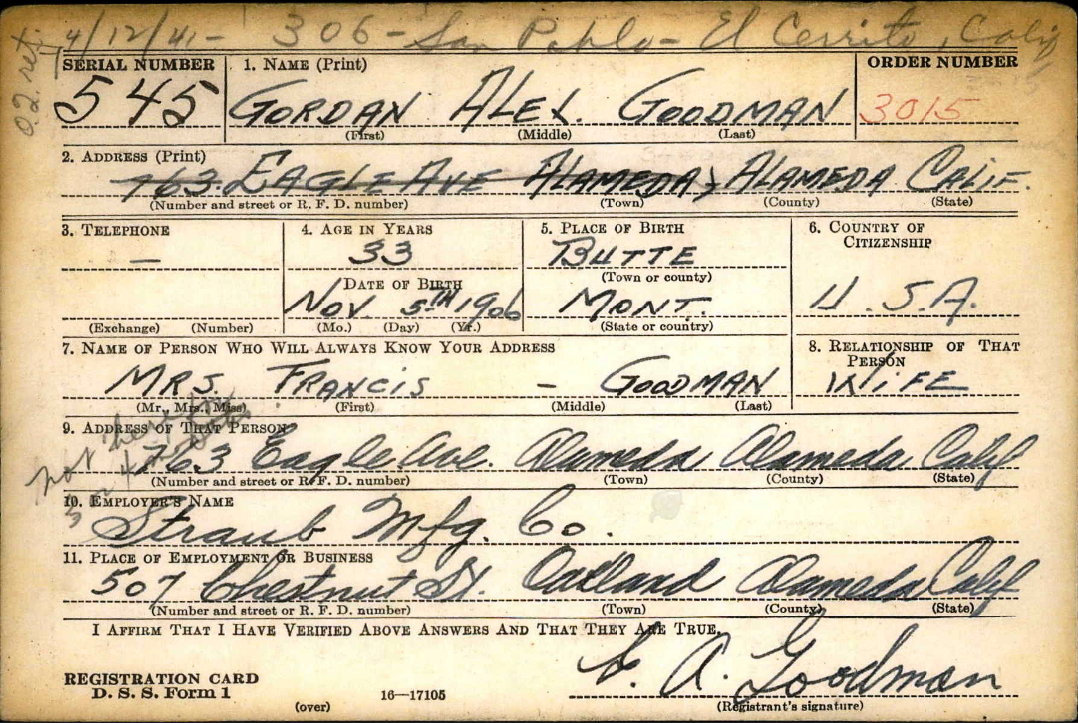 4/12/41- 306 - San Pablo - El Cerrito, Calif
02. ret.
SERIAL NUMBER 1. NAME (Print) ORDER NUMBER
545 GORDAN ALEX. GOODMAN 3015
(First) (Middle) (Last)
2. ADDRESS (Print)
763 EAGLE AVE ALAMEDA, ALAMEDA CALIF.
(Number and street or R. F. D. number) (Town) (County) (State)
3. TELEPHONE 4. AGE IN YEARS 5. PLACE OF BIRTH 6. COUNTRY OF CITIZENSHIP
— 33 BUTTE
(Town or county)
DATE OF BIRTH
NOV. 5TH 1906 MONT. U.S.A.
(Exchange) (Number) (Mo.) (Day) (Yr.) (State or country)
7. NAME OF PERSON WHO WILL ALWAYS KNOW YOUR ADDRESS 8. RELATIONSHIP OF THAT PERSON
MRS. FRANCIS - GOODMAN WIFE
(Mr., Mrs., Miss) (First) (Middle) (Last)
not here
9. ADDRESS OF THAT PERSON
763 Eagle Ave. Alameda Alameda Calif
(Number and street or R. F. D. number) (Town) (County) (State)
10. EMPLOYER'S NAME
Straub Mfg. Co.
11. PLACE OF EMPLOYMENT OR BUSINESS
507 Chestnut St. Oakland Alameda Calif
(Number and street or R. F. D. number) (Town) (County) (State)
I AFFIRM THAT I HAVE VERIFIED ABOVE ANSWERS AND THAT THEY ARE TRUE.
G. A. Goodman
REGISTRATION CARD
D. S. S. Form 1 16—17105
(over) (Registrant's signature)